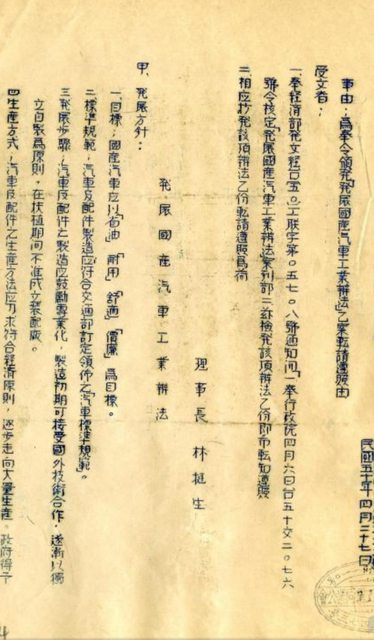 民國五十年四月二十七日
事由：為奉令頒發「發展國產汽車工業辦法」乙案転請遵照由
受文者：
一、奉經濟部發文經台五〇工联字第〇五七〇八號通知同「奉行政院四月六日台五十交二〇七六
號令核定「發展國產汽車工業辦法」案列部二茲檢發該項辦法乙份即希転知遵照
二、相應抄發該項辦法乙份転請遵照為荷
理事長 林挺生
發展國產汽車工業辦法
甲、發展方針：
一、目標：國產汽車应以「省油」「耐用」「舒適」「價廉」為目標。
二、標準規範：汽車及配件製造应符合交通部訂定頒佈之「汽車標準規範」。
三、發展步驟：汽車及配件之製造应鼓勵專業化，製造初期可接受國外技術合作，逐漸以獨
立自製為原則，在扶植期间不准成立裝配廠。
四、生產方式：汽車及配件之生產方法应力求符合經濟原則，逐步走向大量生產。政府得予